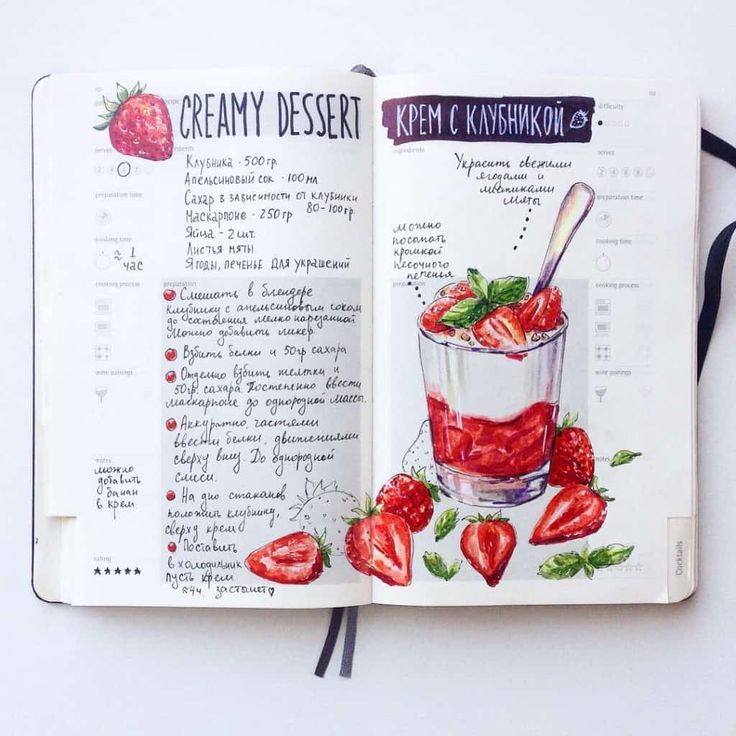 CREAMY DESSERT
Клубника - 500 гр.
Апельсиновый сок - 100 мл
Сахар в зависимости от клубники
80-100 гр.
Маскарпоне - 250 гр
Яйца - 2 шт.
Листья мяты
Ягоды, печенье для украшений
serves
preparation time
cooking time
≈ 1
час
cooking process
wine pairings
notes
можно
добавить
банан
в крем
rating
preparation
Смешать в блендере
клубнику с апельсиновым соком
до состояния мелко нарезанной
Можно добавить ликер.
Взбить белки и 50гр сахара
Отдельно взбить желтки и
50гр. сахара Постепенно ввести
маскарпоне до однородной массы.
Аккуратно, частями
ввести белки, движениями
сверху вниз. До однородной
смеси.
На дно стаканов
положить клубнику,
сверху крем
Поставить
в холодильник
пусть крем
≈4ч. застынет
КРЕМ С КЛУБНИКОЙ
ingredients
Украсить свежими
ягодами и
листиками
мяты
можно
посыпать
крошкой
песочного
печенья
preparation
difficulty
serves
preparation time
cooking time
cooking process
wine pairings
notes
Cocktails